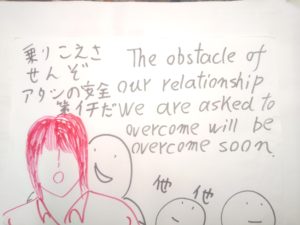 乗りこえさ
せんぞ
アタシの安全
第イチだ
The obstacle of
our relationship
we are asked to
overcome will be
overcome soon.
他 他